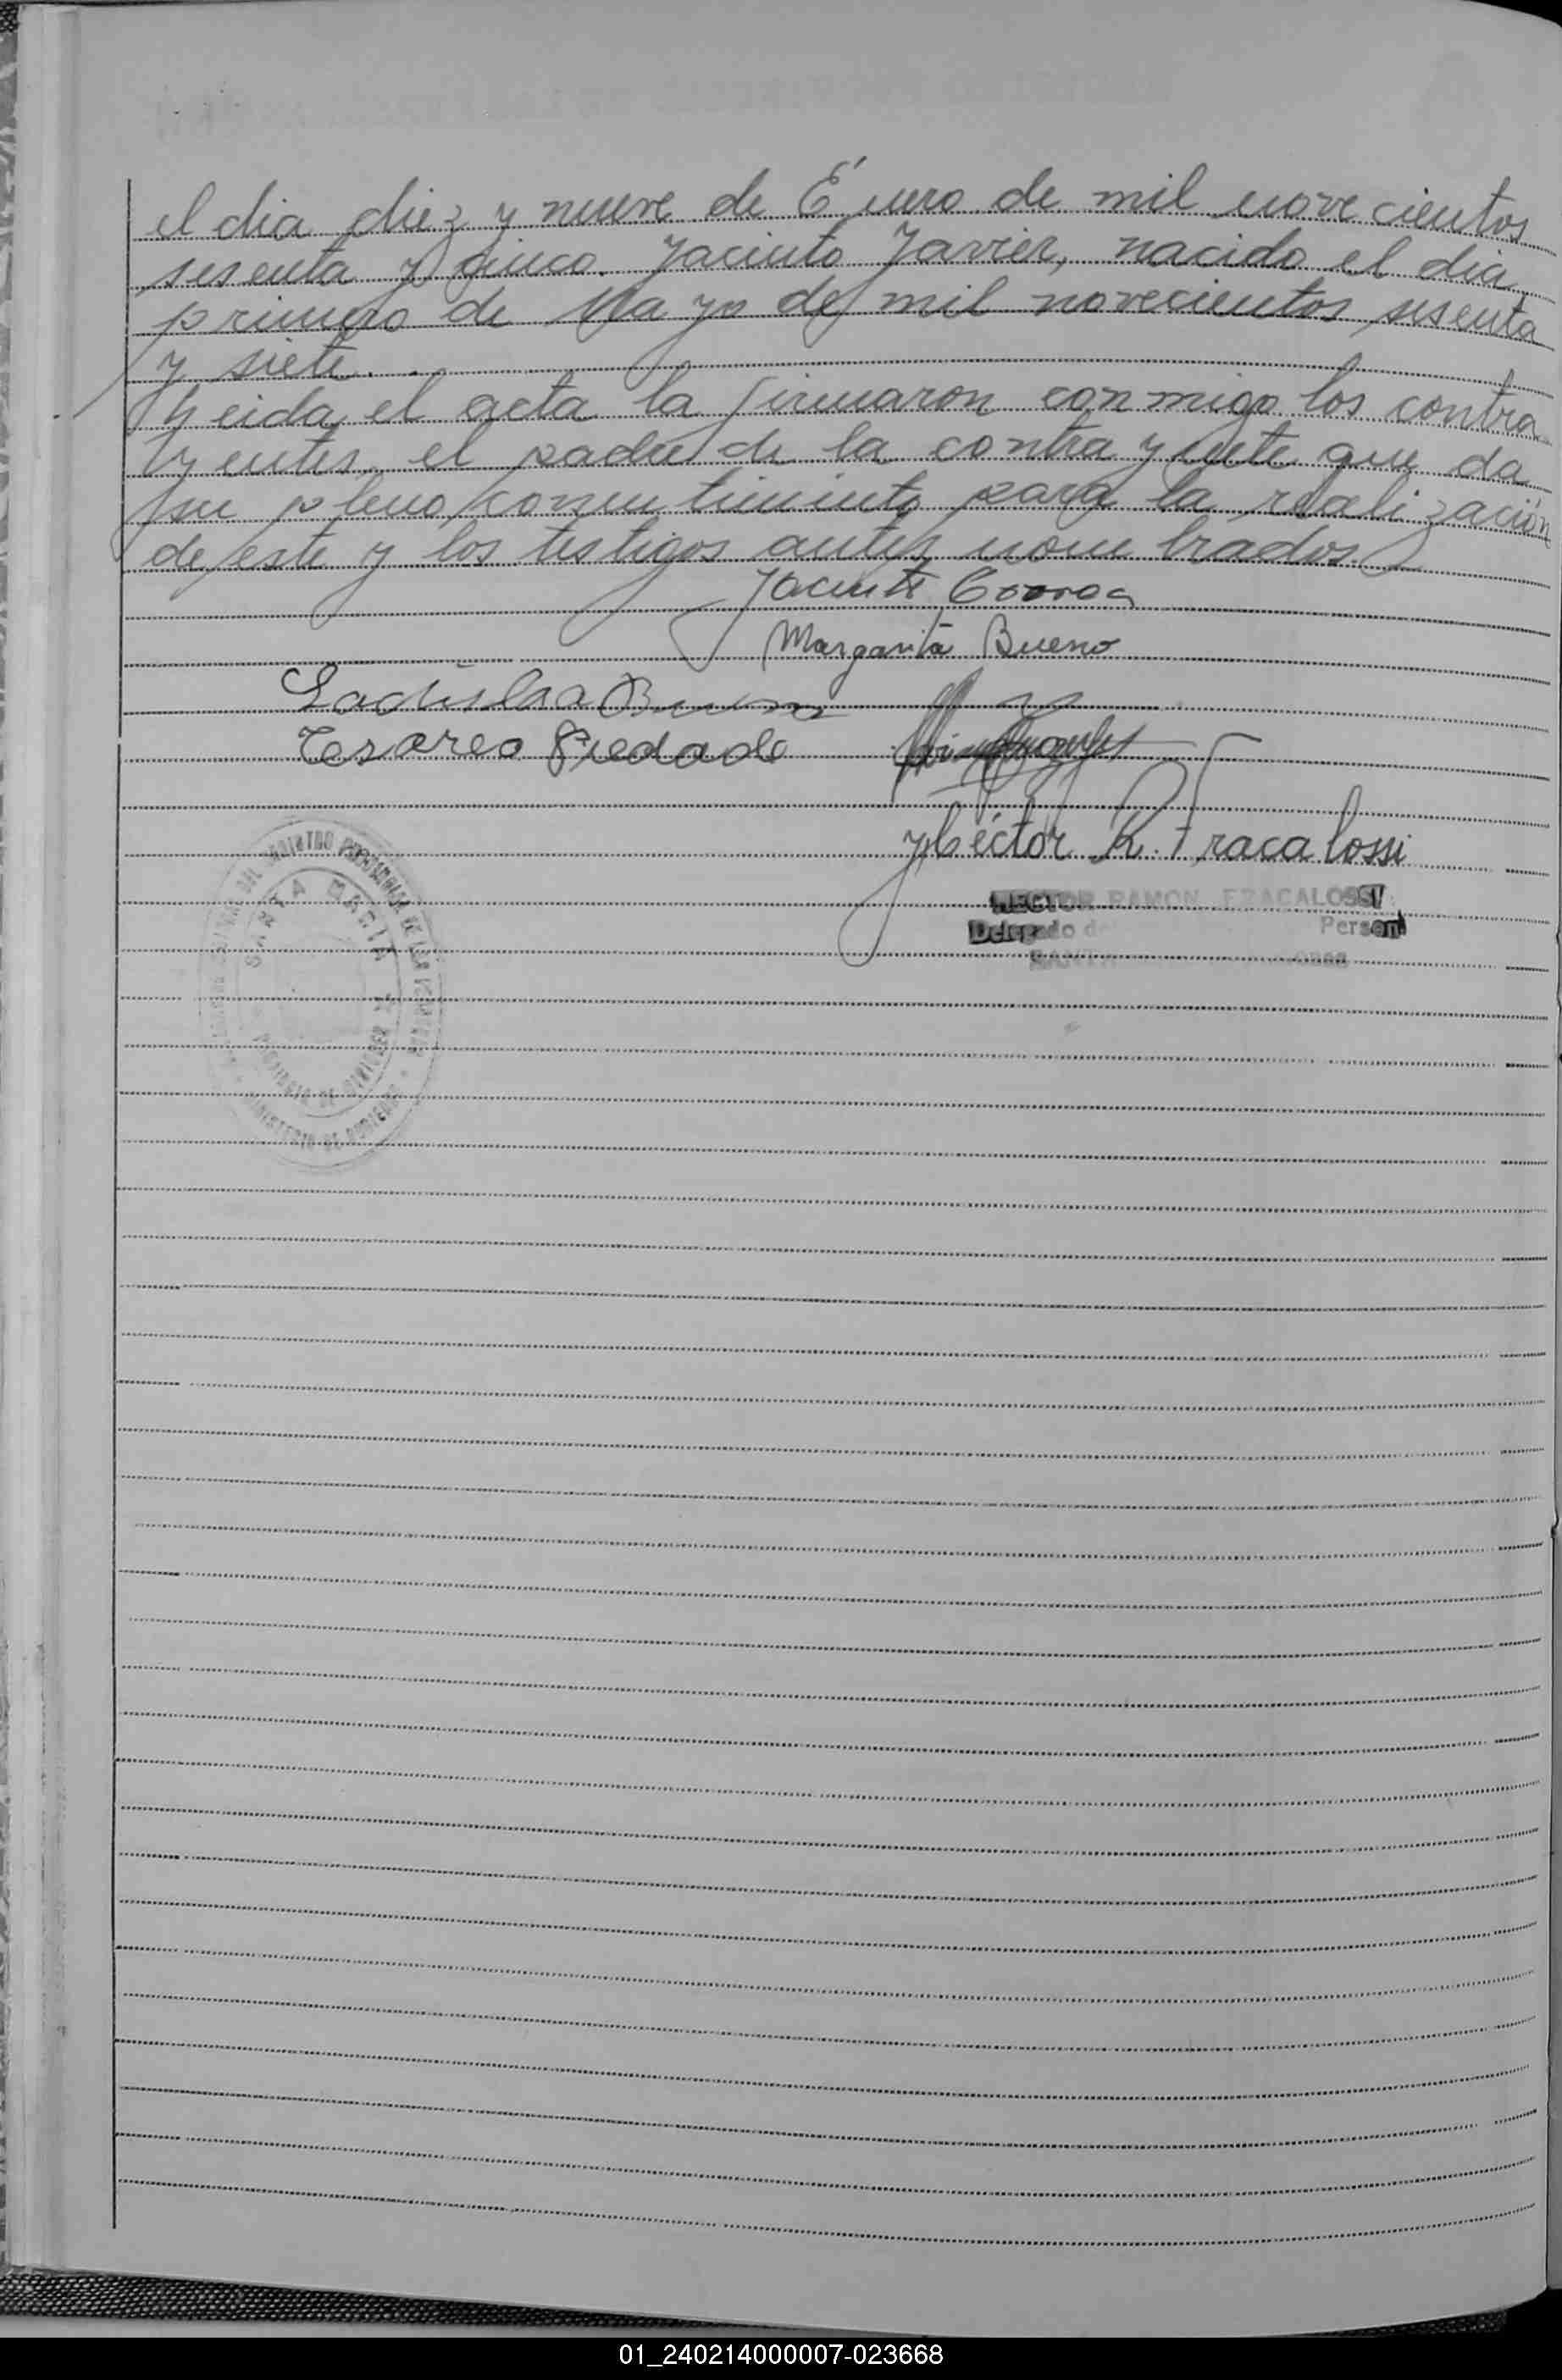 el dia diez y nueve de Énero de mil novecientos
sesenta y cinco. Jacinto Javier, nacido el dia
primero de Mayo de mil novecientos sesenta
y siete. .
Leida el acta la firmaron conmigo los contra
yentes, el padre de la contrayente que da
su pleno consentimiento para la realización
de este y los testigos antes nombrados.
Jacinto Correa
Margarita Bueno
Ladislaa Bueno
Tesoreo Piedade
Héctor R. Fracalossi
HECTOR RAMON FRACALOSSI
Delegado de Person
SANTA
SANTA MARIA
MINISTERIO DE GOBIERNO
01_240214000007-023668